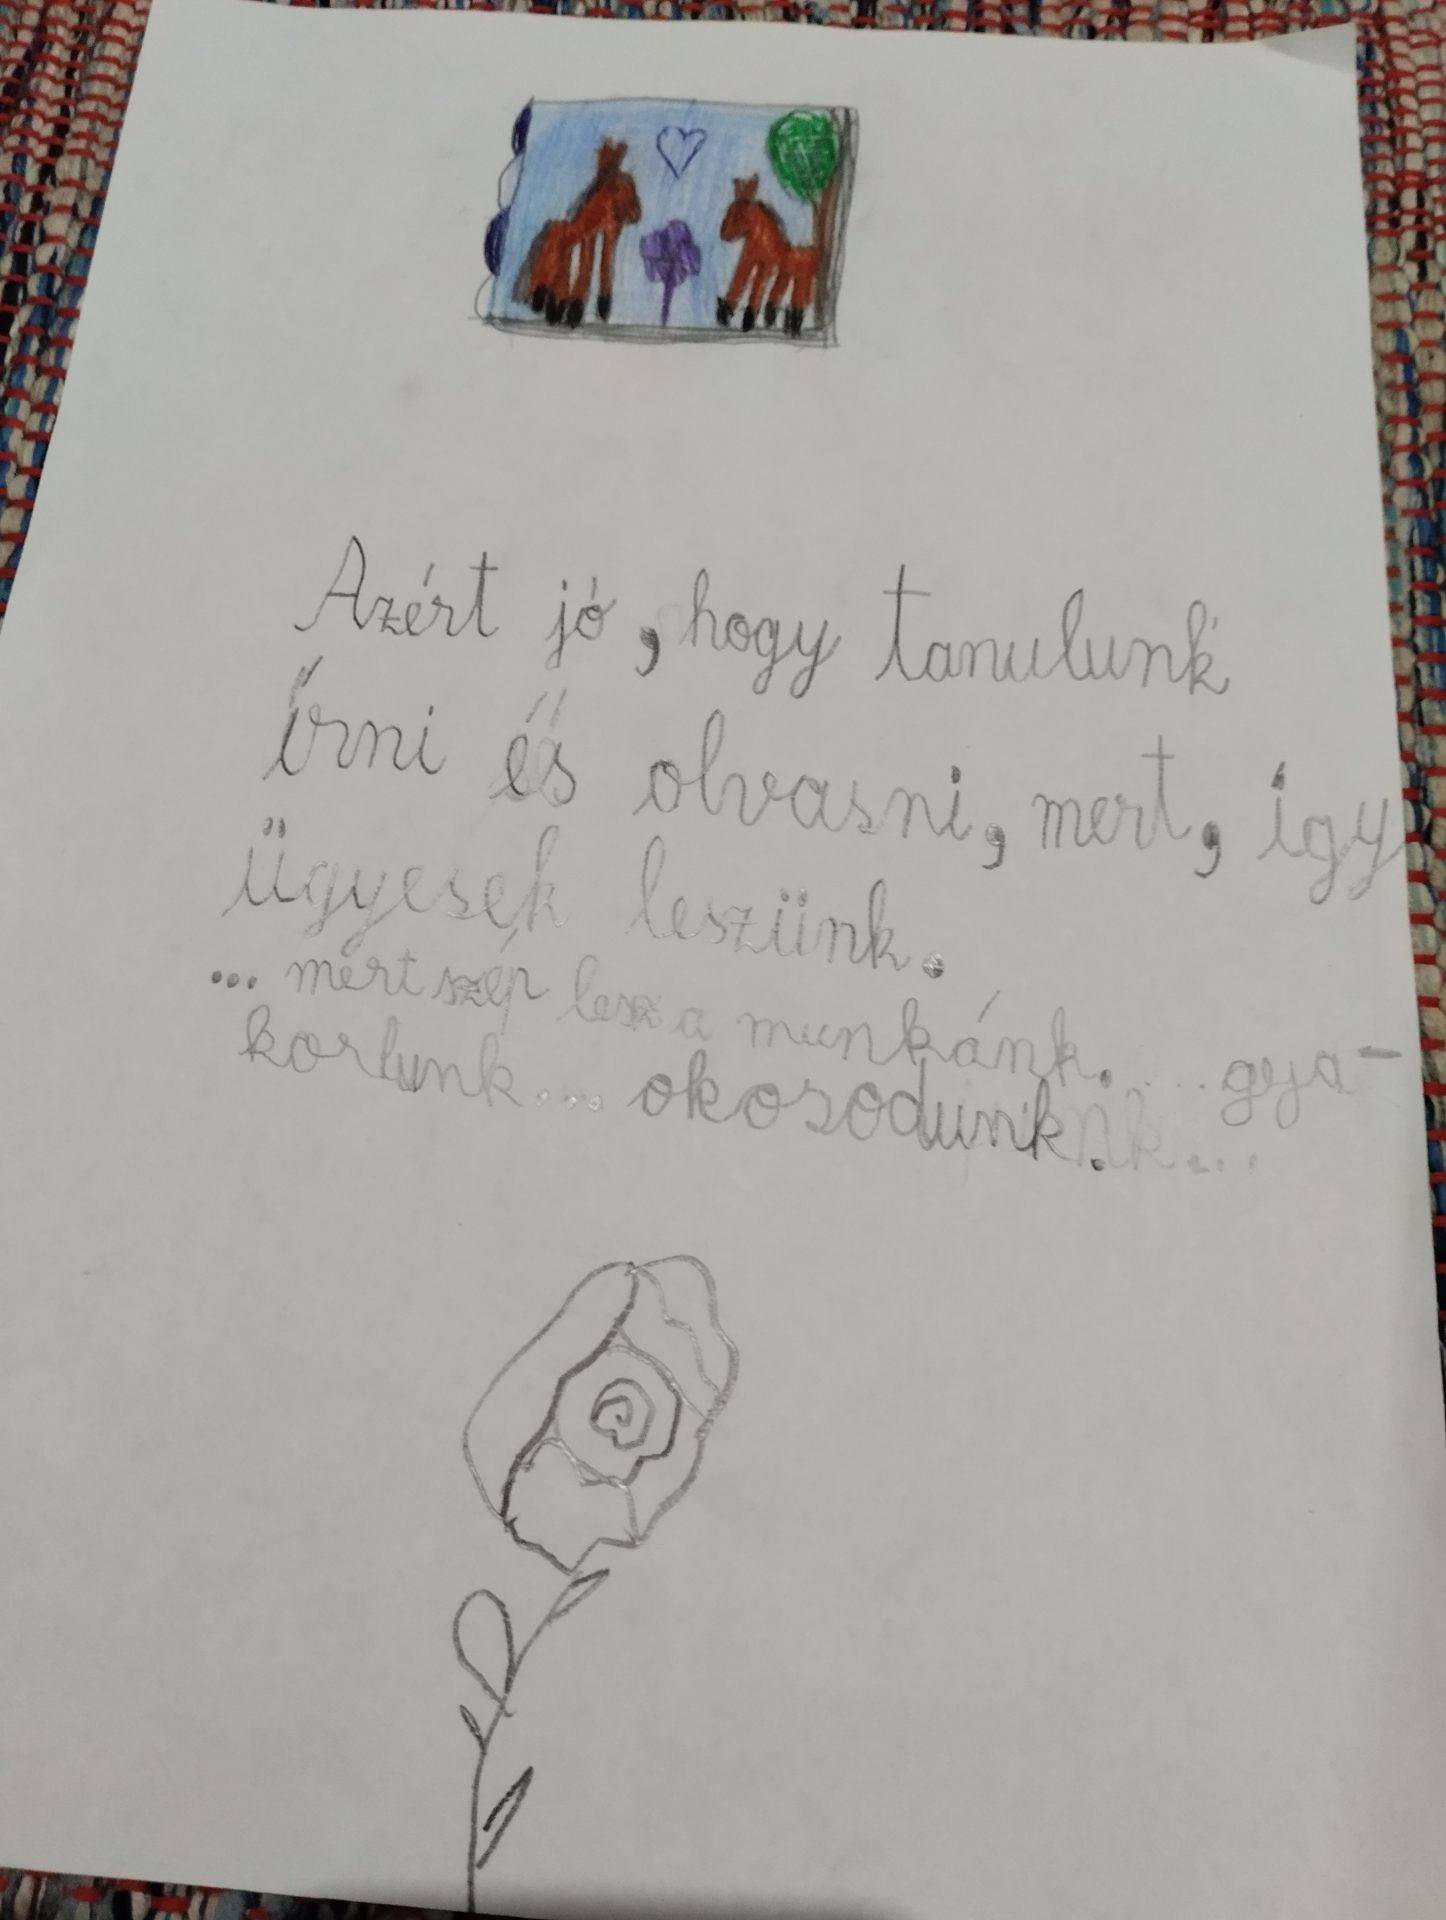 Azért jó, hogy tanulunk
írni és olvasni, mert, így
ügyesek leszünk.
... mert szép lesz a munkánk. ... gya-
korlunk... okosodunk.